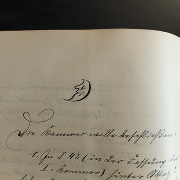 Die Kammer wolle beschließen:
1. In § 42 (in der Fassung der
I. Kammer) hinter Absatz